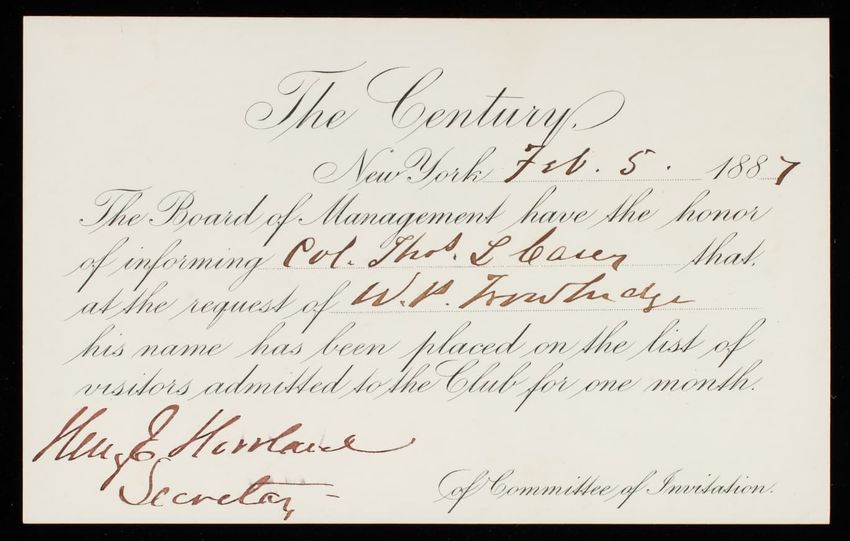 The Century.
New York Feb. 5. 1887
The Board of Management have the honor
of informing Col. Thos. L Casey that,
at the request of W.P. Trowbridge
his name has been placed on the list of
visitors admitted to the Club for one month.
Henry E Howland
Secretary
of Committee of Invitation.